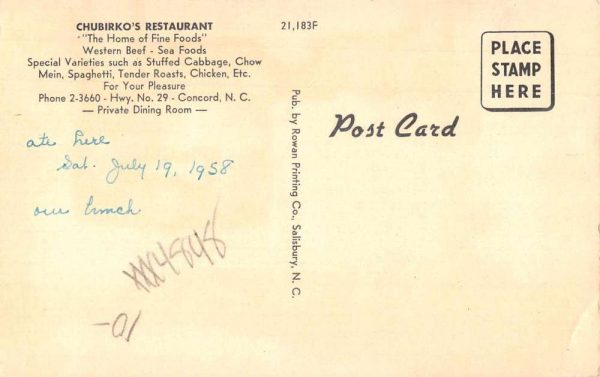 CHUBIRKO'S RESTAURANT
"The Home of Fine Foods"
Western Beef - Sea Foods
Special Varieties such as Stuffed Cabbage, Chow
Mein, Spaghetti, Tender Roasts, Chicken, Etc.
For Your Pleasure
Phone 2-3660 - Hwy. No. 29 - Concord, N. C.
— Private Dining Room —
ate here
Sat. July 19, 1958
our lunch
XXX4848
-01
21,183F
Pub. by Rowan Printing Co., Salisbury, N. C.
Post Card
PLACE
STAMP
HERE